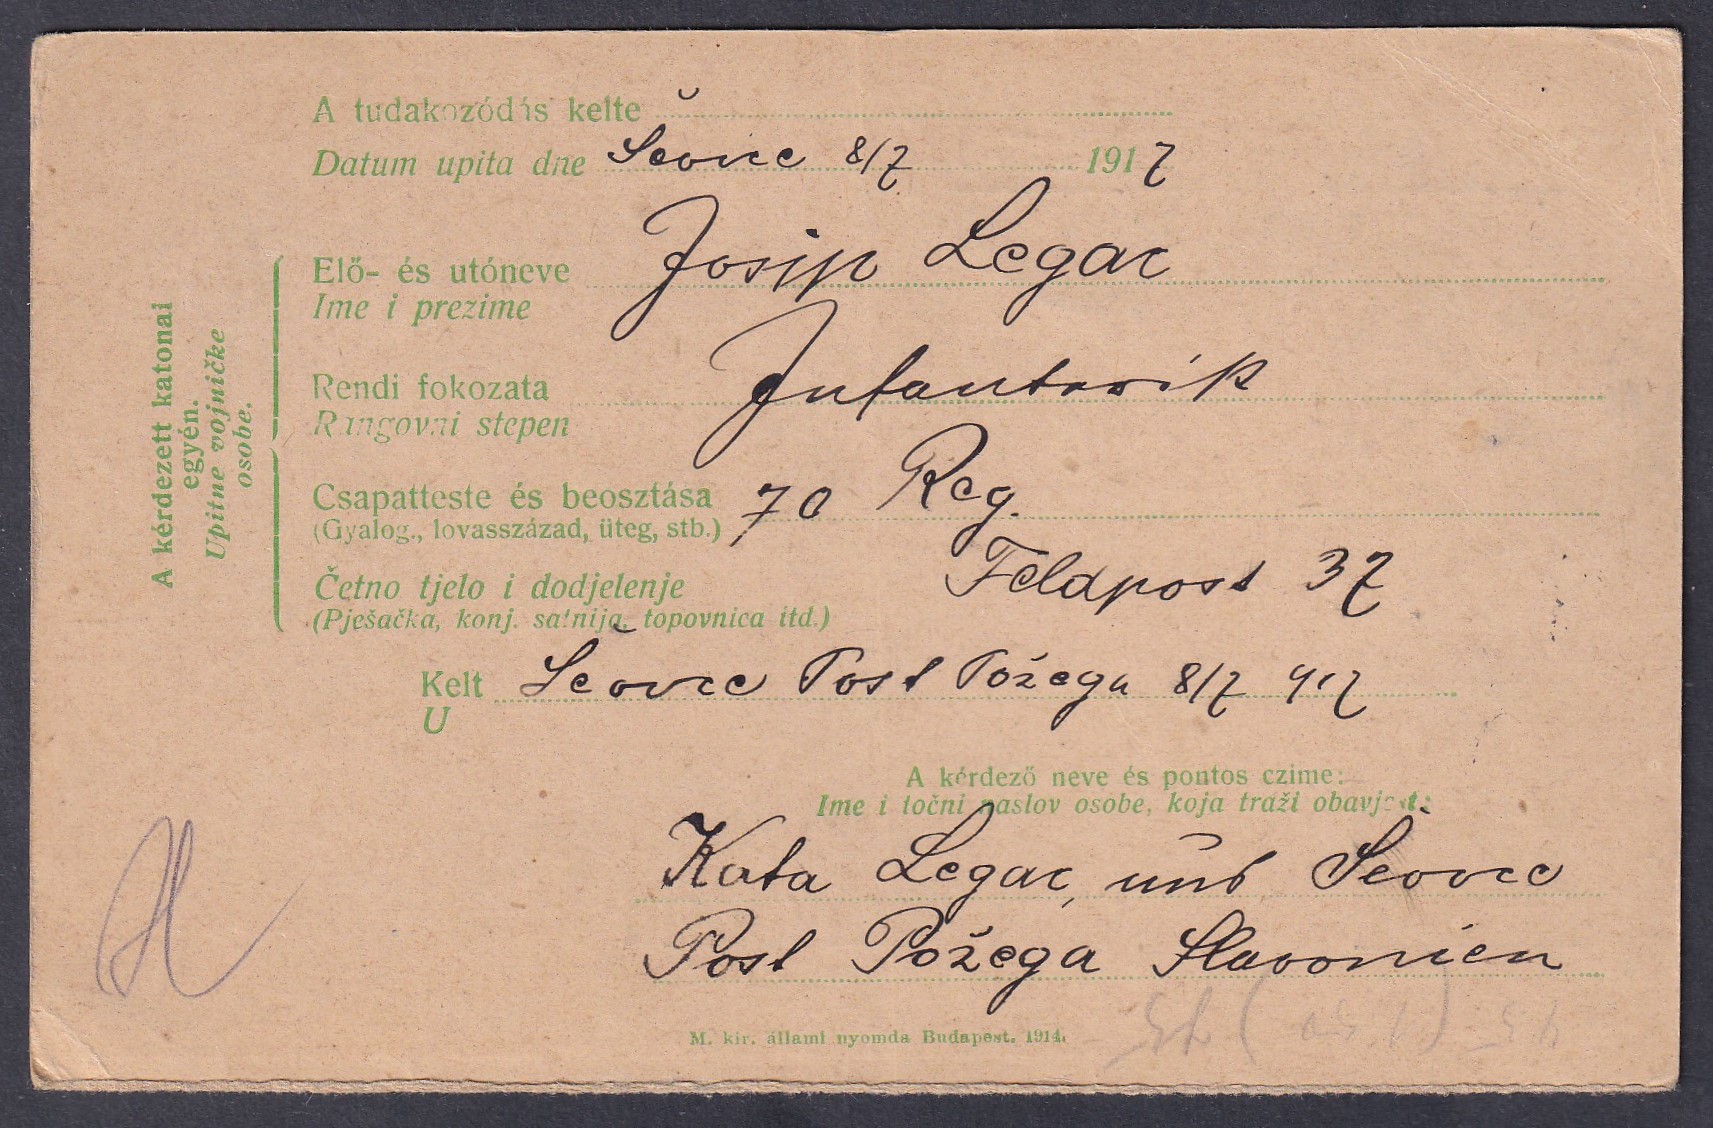 A tudakozódás kelte
Datum upita dne Šeovce 8/7 1917
A kérdezett katonai
egyén.
Upitne vojničke
osobe.
Elő- és utóneve Josip Legac
Ime i prezime
Rendi fokozata Infanterik
Rangovni stepen
Csapatteste és beosztása 70 Reg.
(Gyalog., lovasszázad, üteg, stb.)
Četno tjelo i dodjelenje Feldpost 37
(Pješačka, konj. satnija, topovnica itd.)
Kelt Šeovce Post Požega 8/7 917
U
A kérdező neve és pontos czime:
Ime i točni naslov osobe, koja traži obavjest:
Kata Legac, Šeovce
Post Požega Slavonien
M. kir. állami nyomda Budapest. 1914.